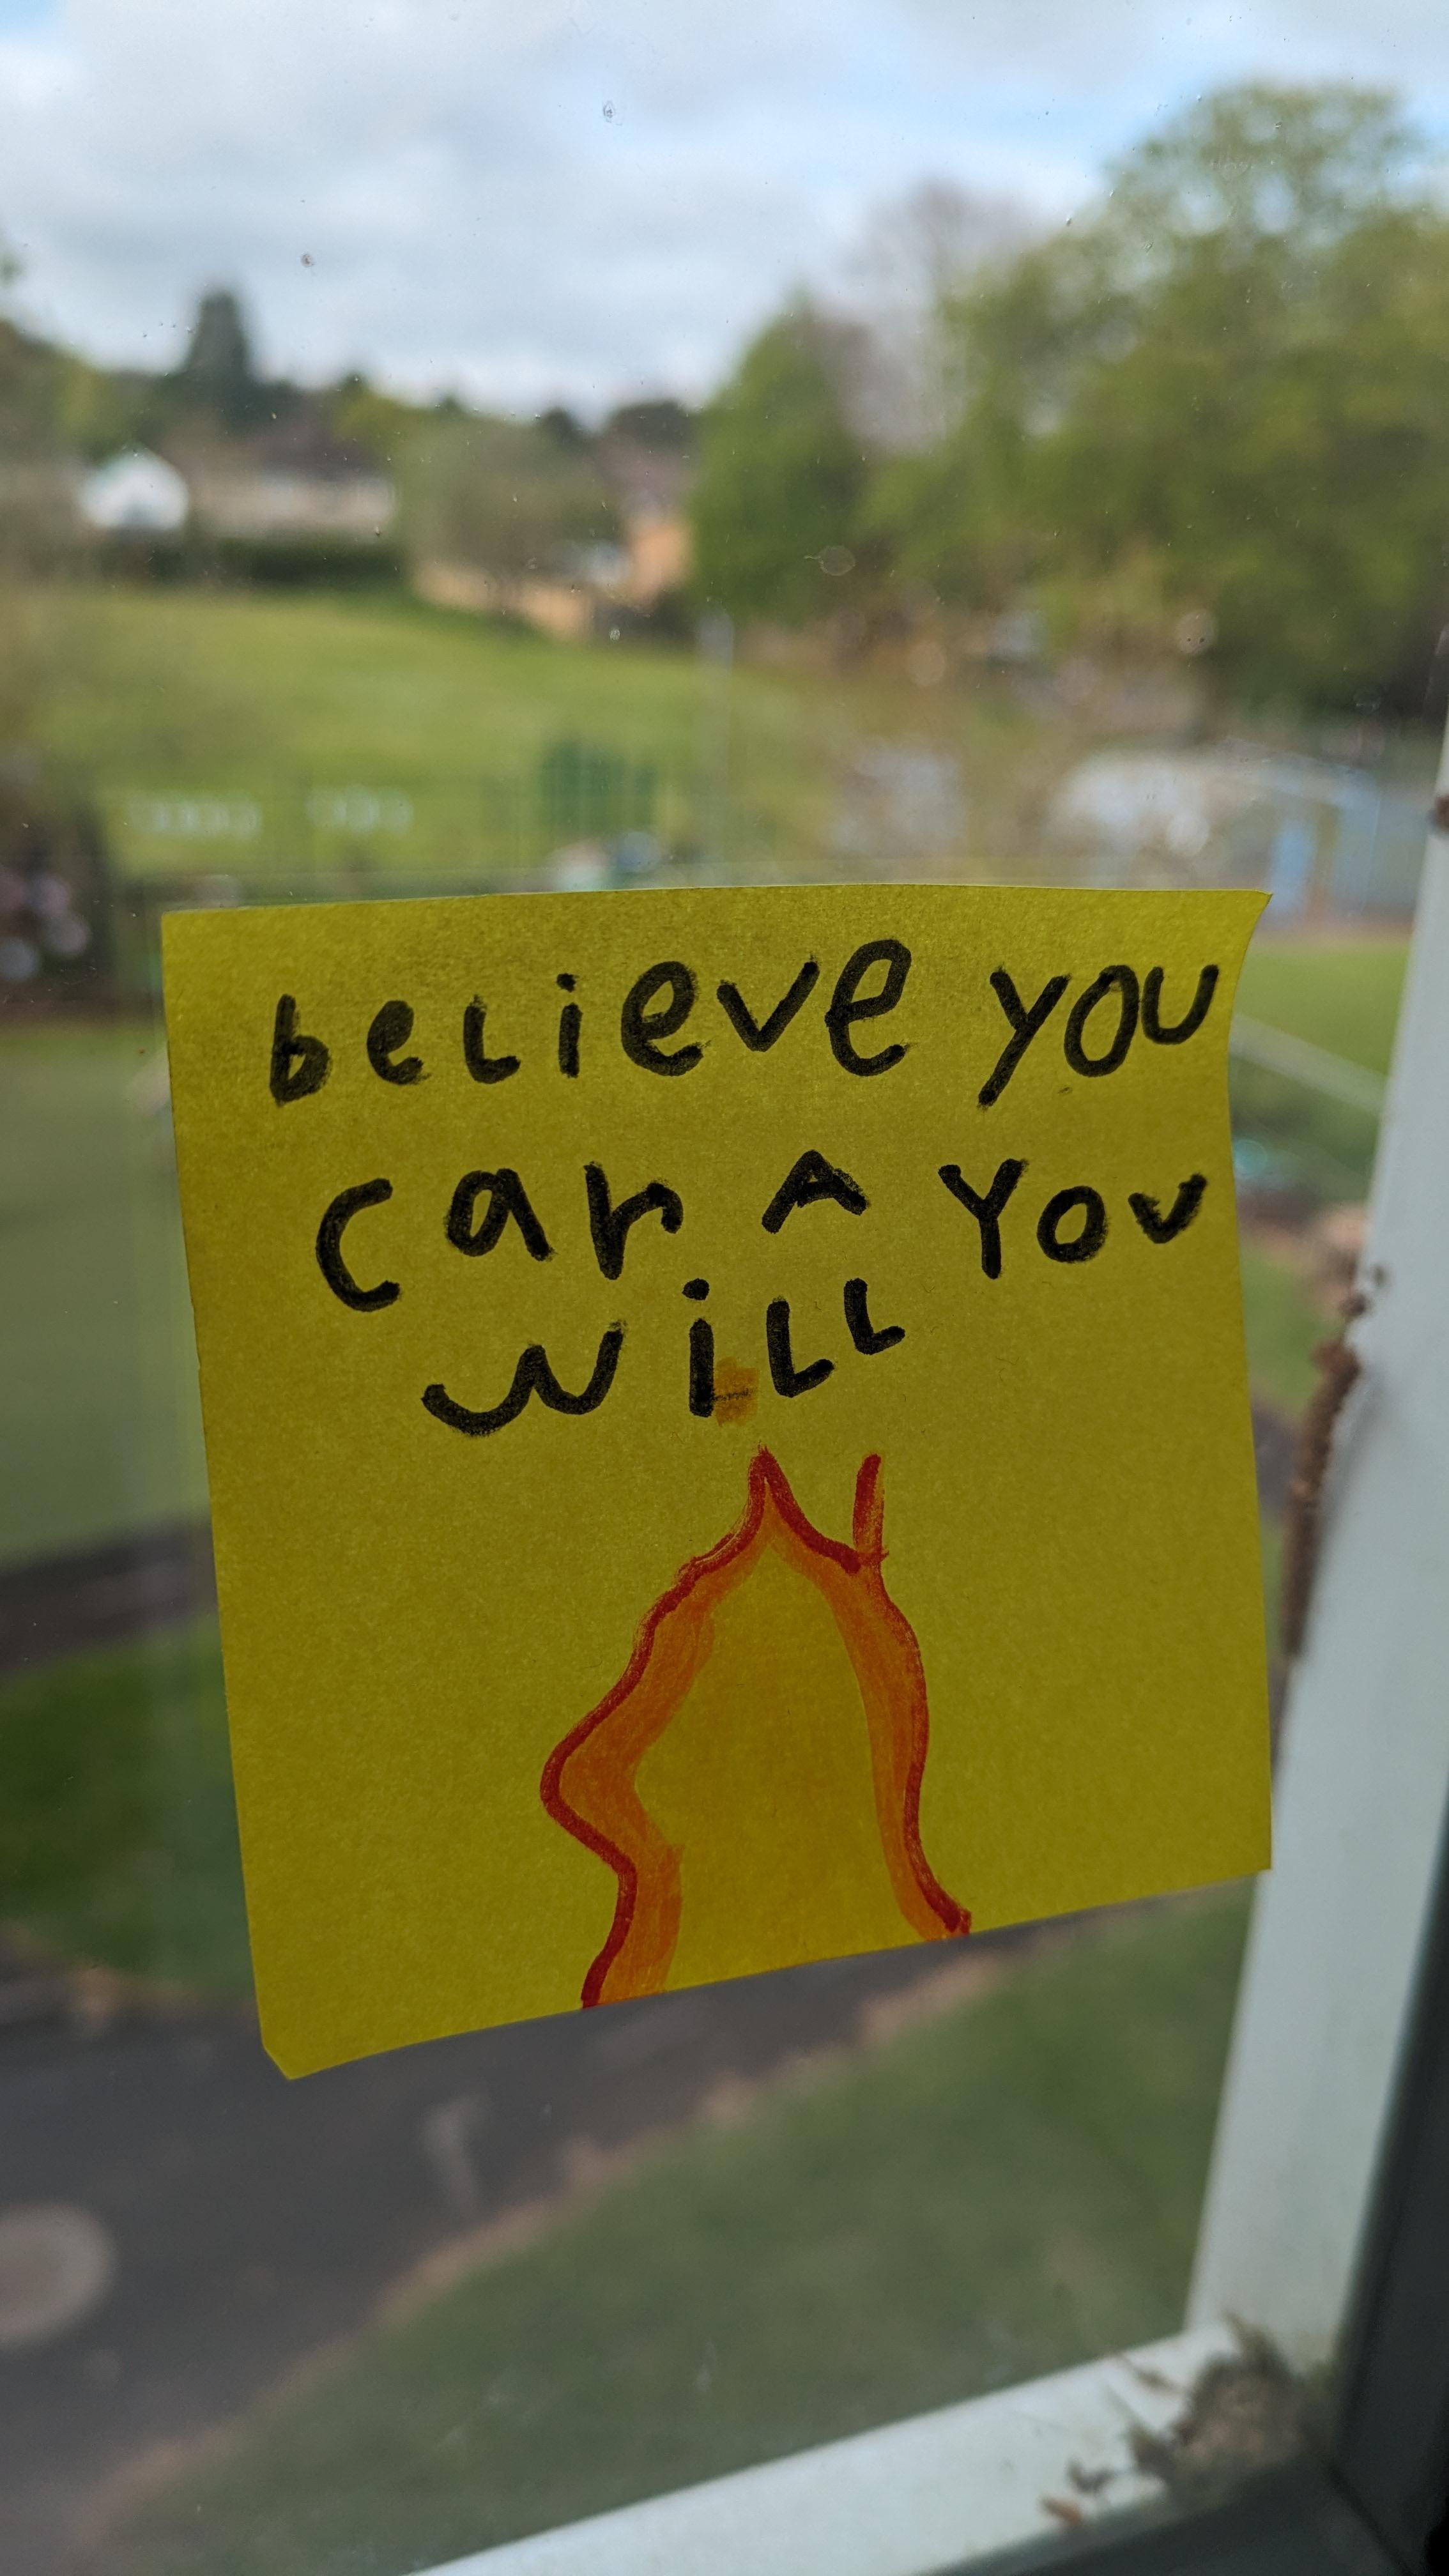 believe you
can ^ you
will